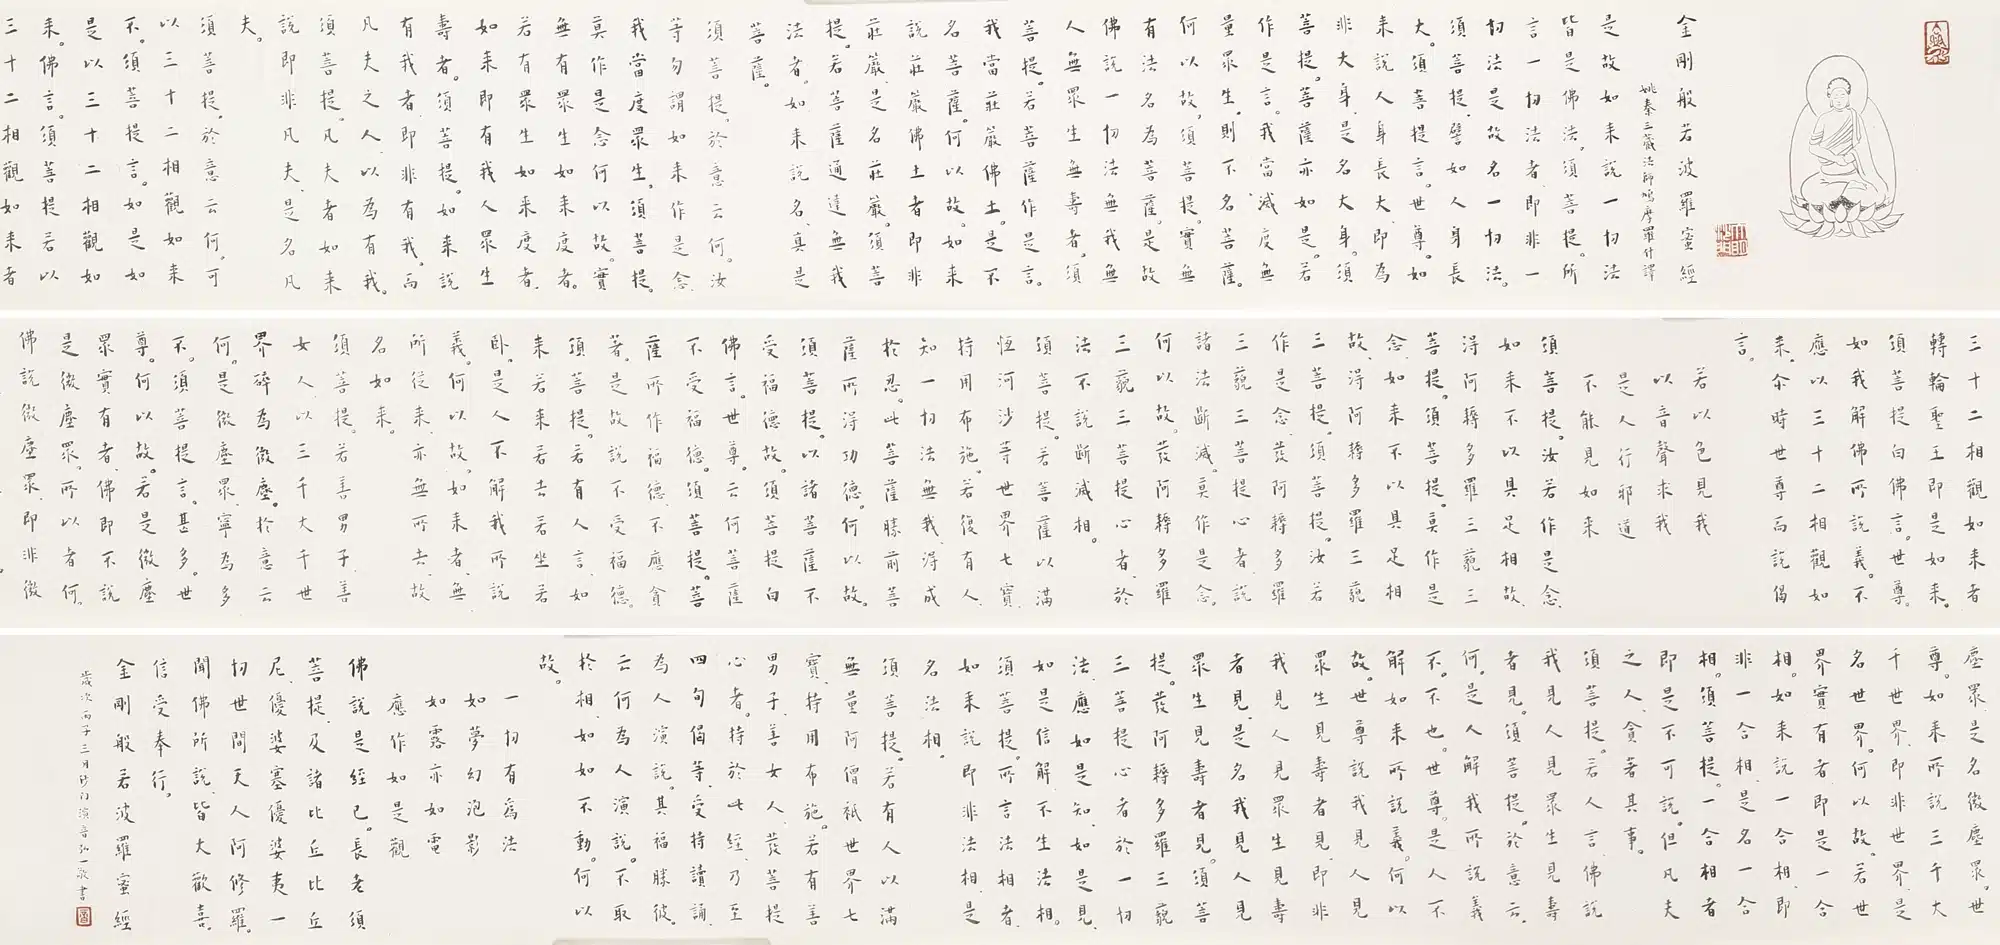 金剛般若波羅蜜經
姚秦三藏法師鳩摩羅什譯
是故如来說一切法
皆是佛法。須菩提。所
言一切法者、即非一
切法是故名一切法。
須菩提、譬如人身長
大。須菩提言。世尊。如
来說人身長大、即為
非大身、是名大身。須
菩提。菩薩亦如是。若
作是言。我當滅度無
量眾生。則不名菩薩。
何以故、須菩提。實無
有法名為菩薩。是故
佛說一切法無我、無
人、無眾生、無壽者、須
菩提。若菩薩作是言。
我當莊嚴佛土。是不
名菩薩。何以故。如来
說莊嚴佛土者、即非
莊嚴、是名莊嚴。須菩
提。若菩薩通達無我
法者。如来說名、真是
菩薩。
須菩提、於意云何。汝
等勿謂如来作是念、
我當度眾生。須菩提。
莫作是念何以故。實
無有眾生如来度者。
若有眾生如来度者、
如来即有我人眾生
壽者。須菩提。如来說
有我者、即非有我。而
凡夫之人、以為有我。
須菩提。凡夫者如来
說即非凡夫、是名凡
夫。
須菩提、於意云何。可
以三十二相觀如来
不。須菩提言。如是如
是以三十二相觀如
来。佛言。須菩提若以
三十二相觀如来者
三十二相觀如来者
轉輪聖王即是如来。
須菩提白佛言。世尊。
如我解佛所說義。不
應以三十二相觀如
来。尒時世尊而說偈
言。
若以色見我
以音聲求我
是人行邪道
不能見如来
須菩提、汝若作是念、
如来不以具足相故、
得阿耨多羅三藐三
菩提。須菩提。莫作是
念、如来不以具足相
故、得阿耨多羅三藐
三菩提。須菩提。汝若
作是念、發阿耨多羅
三藐三菩提心者、說
諸法斷滅。莫作是念。
何以故。發阿耨多羅
三藐三菩提心者、於
法不說斷滅相。
須菩提。若菩薩以滿
恒河沙等世界七寶、
持用布施。若復有人、
知一切法無我、得成
於忍。此菩薩勝前菩
薩所得功德。何以故。
須菩提。以諸菩薩不
受福德故。須菩提白
佛言。世尊。云何菩薩
不受福德。須菩提。菩
薩所作福德、不應貪
著、是故說不受福德。
須菩提。若有人言、如
来若来若去若坐若
臥。是人不解我所說
義。何以故。如来者、無
所從来、亦無所去、故
名如来。
須菩提。若善男子、善
女人、以三千大千世
界碎為微塵。於意云
何。是微塵眾、寧為多
不。須菩提言。甚多。世
尊。何以故。若是微塵
眾實有者、佛即不說
是微塵眾。所以者何。
佛說微塵眾、即非微
塵眾、是名微塵眾。世
尊。如来所說三千大
千世界、即非世界、是
名世界。何以故。若世
界實有者、即是一合
相。如来說一合相、即
非一合相、是名一合
相。須菩提。一合相者
即是不可說。但凡夫
之人、貪著其事。
須菩提。若人言佛說
我見人見眾生見壽
者見。須菩提。於意云
何。是人解我所說義
不。不也。世尊。是人不
解如来所說義。何以
故。世尊說我見人見
眾生見壽者見、即非
我見人見眾生見壽
者見、是名我見人見
眾生見壽者見。須菩
提。發阿耨多羅三藐
三菩提心者、於一切
法、應如是知、如是見、
如是信解、不生法相。
須菩提。所言法相者、
如来說即非法相、是
名法相。
須菩提。若有人以滿
無量阿僧祇世界七
寶、持用布施。若有善
男子、善女人、發菩提
心者。持於此經、乃至
四句偈等、受持讀誦
為人演說。其福勝彼。
云何為人演說。不取
於相、如如不動。何以
故。
一切有為法
如夢幻泡影
如露亦如電
應作如是觀
佛說是經已。長老須
菩提、及諸比丘比丘
尼、優婆塞優婆夷、一
切世間天人阿修羅。
聞佛所說、皆大歡喜。
信受奉行。
金剛般若波羅蜜經
歲次丙子三月沙門演音弘一敬書